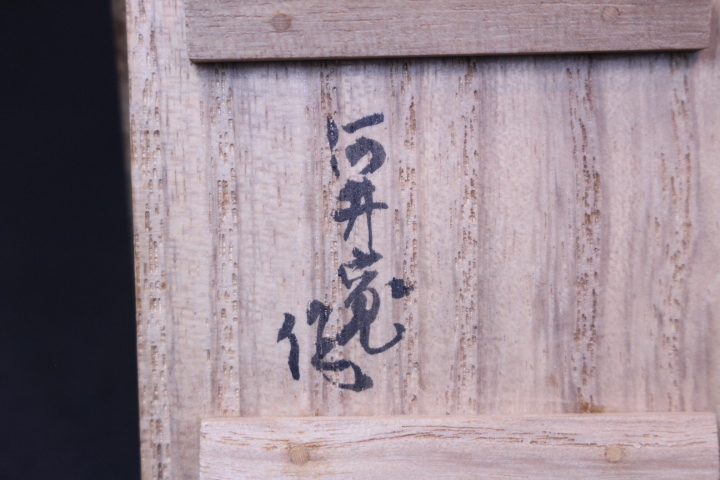 河井寛
作